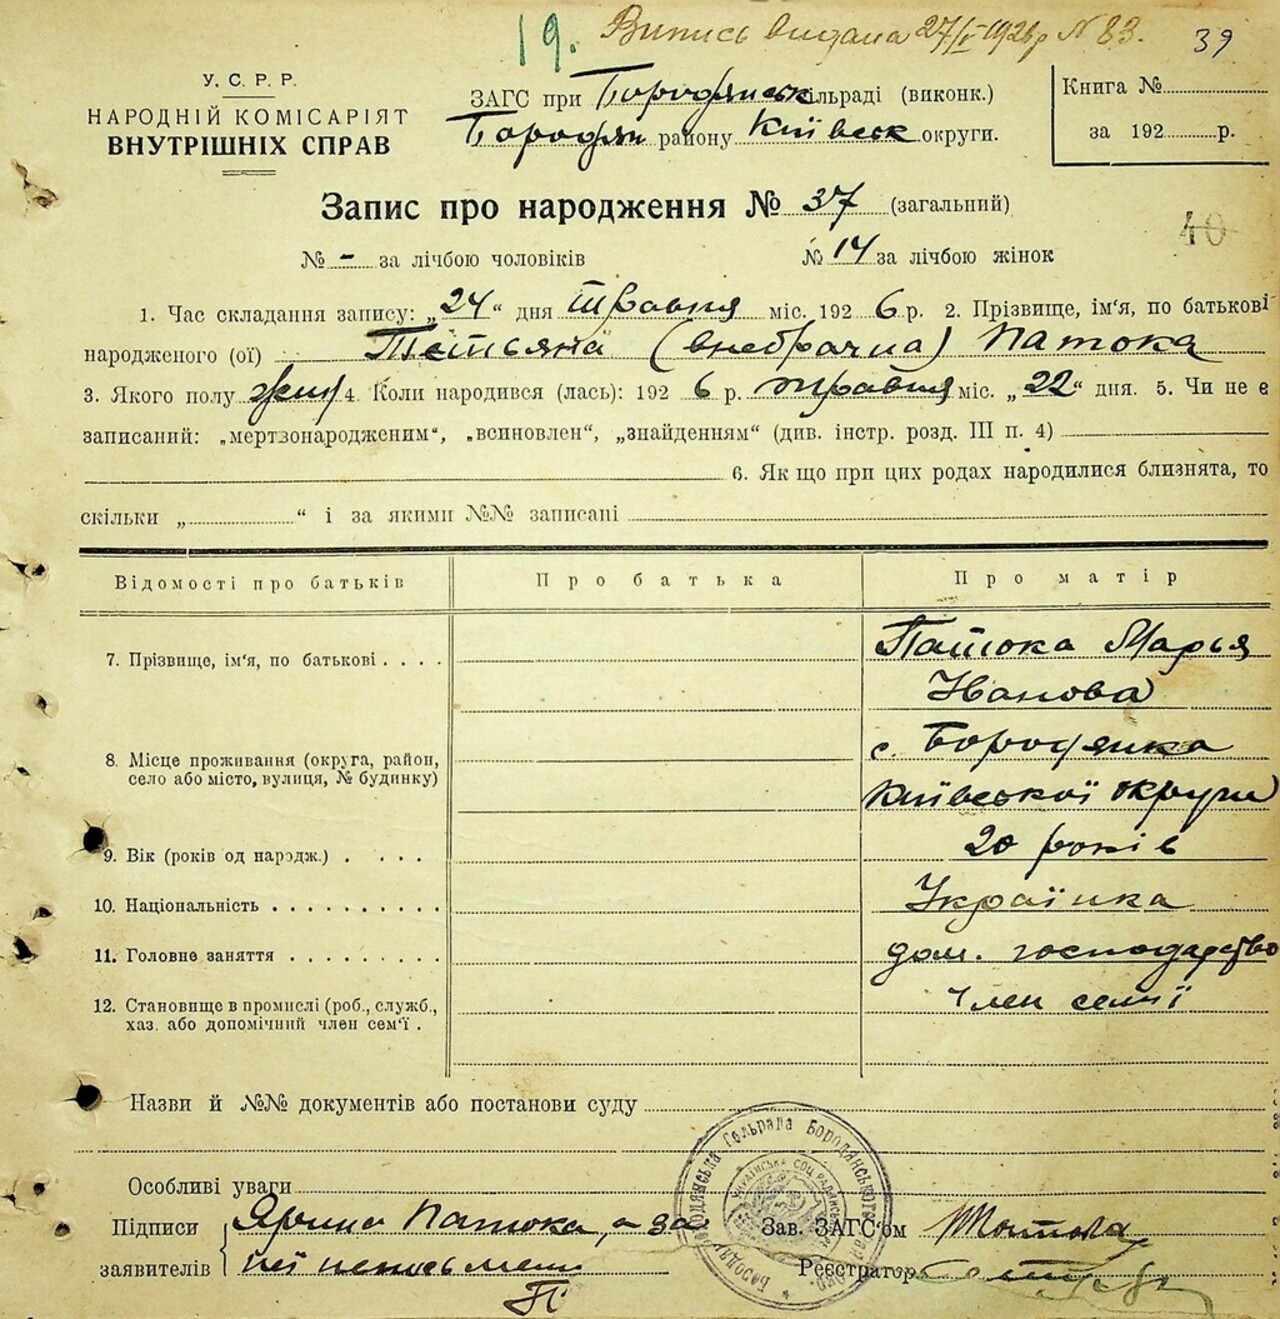 19. Випись видана 27/V 1926 р N 83. 39
У. С. Р. Р.
НАРОДНІЙ КОМІСАРІЯТ
ВНУТРІШНІХ СПРАВ
ЗАГС при Бородянськ сільраді (виконк.)
Бородян району Київськ округи.
Книга №
за 192 р.
Запис про народження № 37 (загальний)
40
№ - за лічбою чоловіків № 14 за лічбою жінок
1. Час складання запису: „24“ дня травня міс. 1926 р. 2. Прізвище, ім'я, по батькові
народженого (ої) Тетьяна (внебрачна) Патока
3. Якого полу жин 4. Коли народився (лась): 1926 р. травня міс. „22“ дня. 5. Чи не є
записаний: „мертзонародженим“, „всиновлен“, „знайденням“ (див. інстр. розд. III п. 4)
6. Як що при цих родах народилися близнята, то
скільки „ “ і за якими №№ записані
Відомості про батьків Про батька Про матір
7. Прізвище, ім'я, по батькові . . . . Патока Марья
Иванова
8. Місце проживання (округа, район, с. Бородянка
село або місто, вулиця, № будинку) Київської округи
9. Вік (років од народж.) . . . . 20 років
10. Національність . . . . . . . . . . Українка
11. Головне заняття . . . . . . . . . дом. господарство
12. Становище в промислі (роб., служб., Член семьї
хаз. або допомічний член сем'ї .
Назви й №№ документів або постанови суду
Особливі уваги
Бородянська Сільрада Бородянського
Українська Соц. Радянськ
Підписи Ярина Патока, а за Зав. ЗАГС'ом
заявителів неї неписьмен Реєстратор